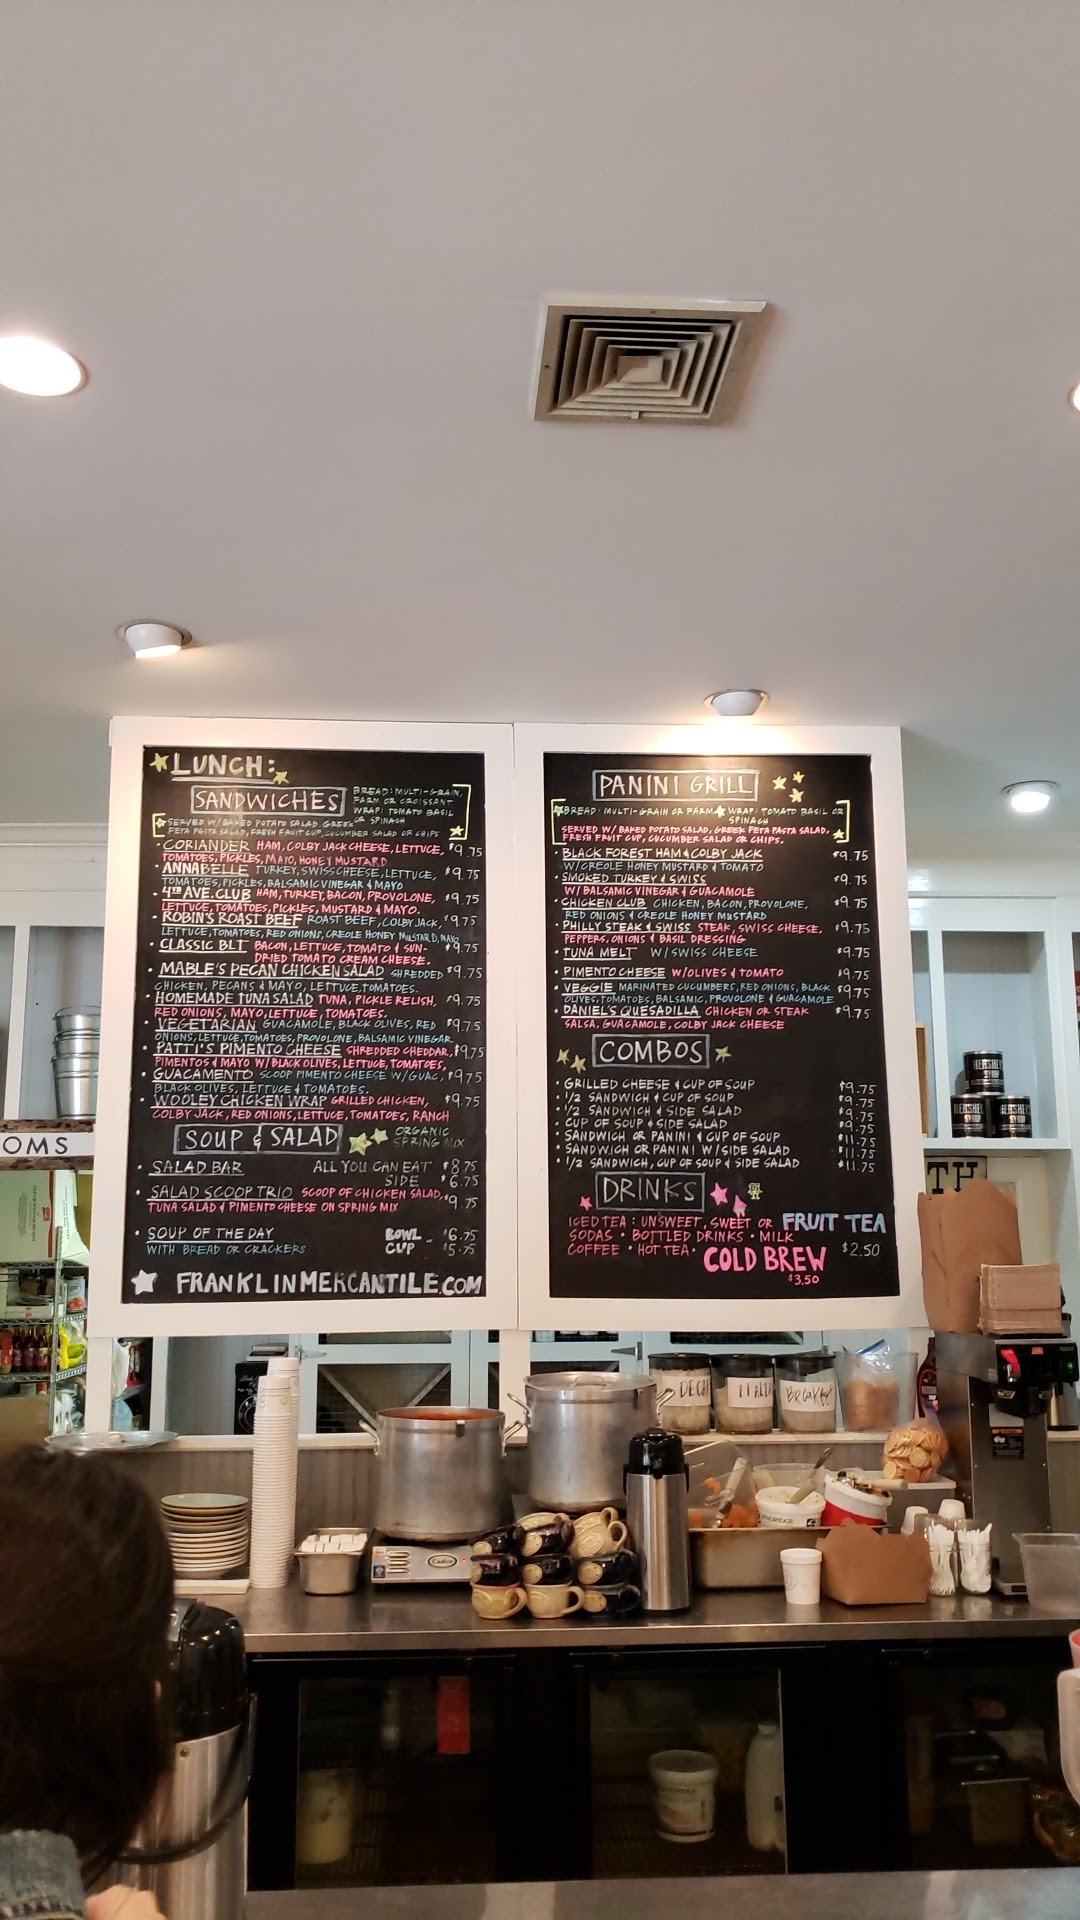 LUNCH:
SANDWICHES
BREAD: MULTI-GRAIN,
FARM OR CROISSANT
WRAP: TOMATO BASIL
OR SPINACH
SERVED W/ BAKED POTATO SALAD, GREEK
FETA PASTA SALAD, FRESH FRUIT CUP, CUCUMBER SALAD OR CHIPS
• CORIANDER HAM, COLBY JACK CHEESE, LETTUCE, $9.75
TOMATOES, PICKLES, MAYO, HONEY MUSTARD
• ANNABELLE TURKEY, SWISS CHEESE, LETTUCE, $9.75
TOMATOES, PICKLES, BALSAMIC VINEGAR & MAYO
• 4TH AVE. CLUB HAM, TURKEY, BACON, PROVOLONE, $9.75
LETTUCE, TOMATOES, PICKLES, MUSTARD & MAYO.
• ROBIN'S ROAST BEEF ROAST BEEF, COLBY JACK, $9.75
LETTUCE, TOMATOES, RED ONIONS, CREOLE HONEY MUSTARD, MAYO
• CLASSIC BLT BACON, LETTUCE, TOMATO & SUN- $9.75
DRIED TOMATO CREAM CHEESE.
• MABLE'S PECAN CHICKEN SALAD SHREDDED $9.75
CHICKEN, PECANS & MAYO, LETTUCE, TOMATOES.
• HOMEMADE TUNA SALAD TUNA, PICKLE RELISH, $9.75
RED ONIONS, MAYO, LETTUCE, TOMATOES.
• VEGETARIAN GUACAMOLE, BLACK OLIVES, RED $9.75
ONIONS, LETTUCE, TOMATOES, PROVOLONE, BALSAMIC VINEGAR
• PATTI'S PIMENTO CHEESE SHREDDED CHEDDAR, $9.75
PIMENTOS & MAYO W/ BLACK OLIVES, LETTUCE, TOMATOES,
• GUACAMENTO SCOOP PIMENTO CHEESE W/ GUAC, $9.75
BLACK OLIVES, LETTUCE & TOMATOES.
• WOOLEY CHICKEN WRAP GRILLED CHICKEN, $9.75
COLBY JACK, RED ONIONS, LETTUCE, TOMATOES, RANCH
SOUP & SALAD
ORGANIC
SPRING MIX
• SALAD BAR ALL YOU CAN EAT $8.75
SIDE $6.75
• SALAD SCOOP TRIO SCOOP OF CHICKEN SALAD, $9.75
TUNA SALAD & PIMENTO CHEESE ON SPRING MIX
• SOUP OF THE DAY BOWL - $6.75
WITH BREAD OR CRACKERS CUP - $5.75
FRANKLINMERCANTILE.COM
PANINI GRILL
BREAD: MULTI-GRAIN OR FARM WRAP: TOMATO BASIL OR
SPINACH
SERVED W/ BAKED POTATO SALAD, GREEK FETA PASTA SALAD,
FRESH FRUIT CUP, CUCUMBER SALAD OR CHIPS.
• BLACK FOREST HAM & COLBY JACK $9.75
W/ CREOLE HONEY MUSTARD & TOMATO
• SMOKED TURKEY & SWISS $9.75
W/ BALSAMIC VINEGAR & GUACAMOLE
• CHICKEN CLUB CHICKEN, BACON, PROVOLONE, $9.75
RED ONIONS & CREOLE HONEY MUSTARD
• PHILLY STEAK & SWISS STEAK, SWISS CHEESE, $9.75
PEPPERS, ONIONS & BASIL DRESSING
• TUNA MELT W/ SWISS CHEESE $9.75
• PIMENTO CHEESE W/ OLIVES & TOMATO $9.75
• VEGGIE MARINATED CUCUMBERS, RED ONIONS, BLACK $9.75
OLIVES, TOMATOES, BALSAMIC, PROVOLONE & GUACAMOLE
• DANIEL'S QUESADILLA CHICKEN OR STEAK $9.75
SALSA, GUACAMOLE, COLBY JACK CHEESE
COMBOS
• GRILLED CHEESE & CUP OF SOUP $9.75
• 1/2 SANDWICH & CUP OF SOUP $9.75
• 1/2 SANDWICH & SIDE SALAD $9.75
• CUP OF SOUP & SIDE SALAD $9.75
• SANDWICH OR PANINI & CUP OF SOUP $11.75
• SANDWICH OR PANINI W/ SIDE SALAD $11.75
• 1/2 SANDWICH, CUP OF SOUP & SIDE SALAD $11.75
DRINKS
ICED TEA: UNSWEET, SWEET OR FRUIT TEA
SODAS • BOTTLED DRINKS • MILK
COFFEE • HOT TEA • COLD BREW $2.50
$3.50
OMS
TH
HERSHEY'S
HERSHEY'S
HERSHEY'S
DECAF
ITALIAN
BREAKFAST
Cadco